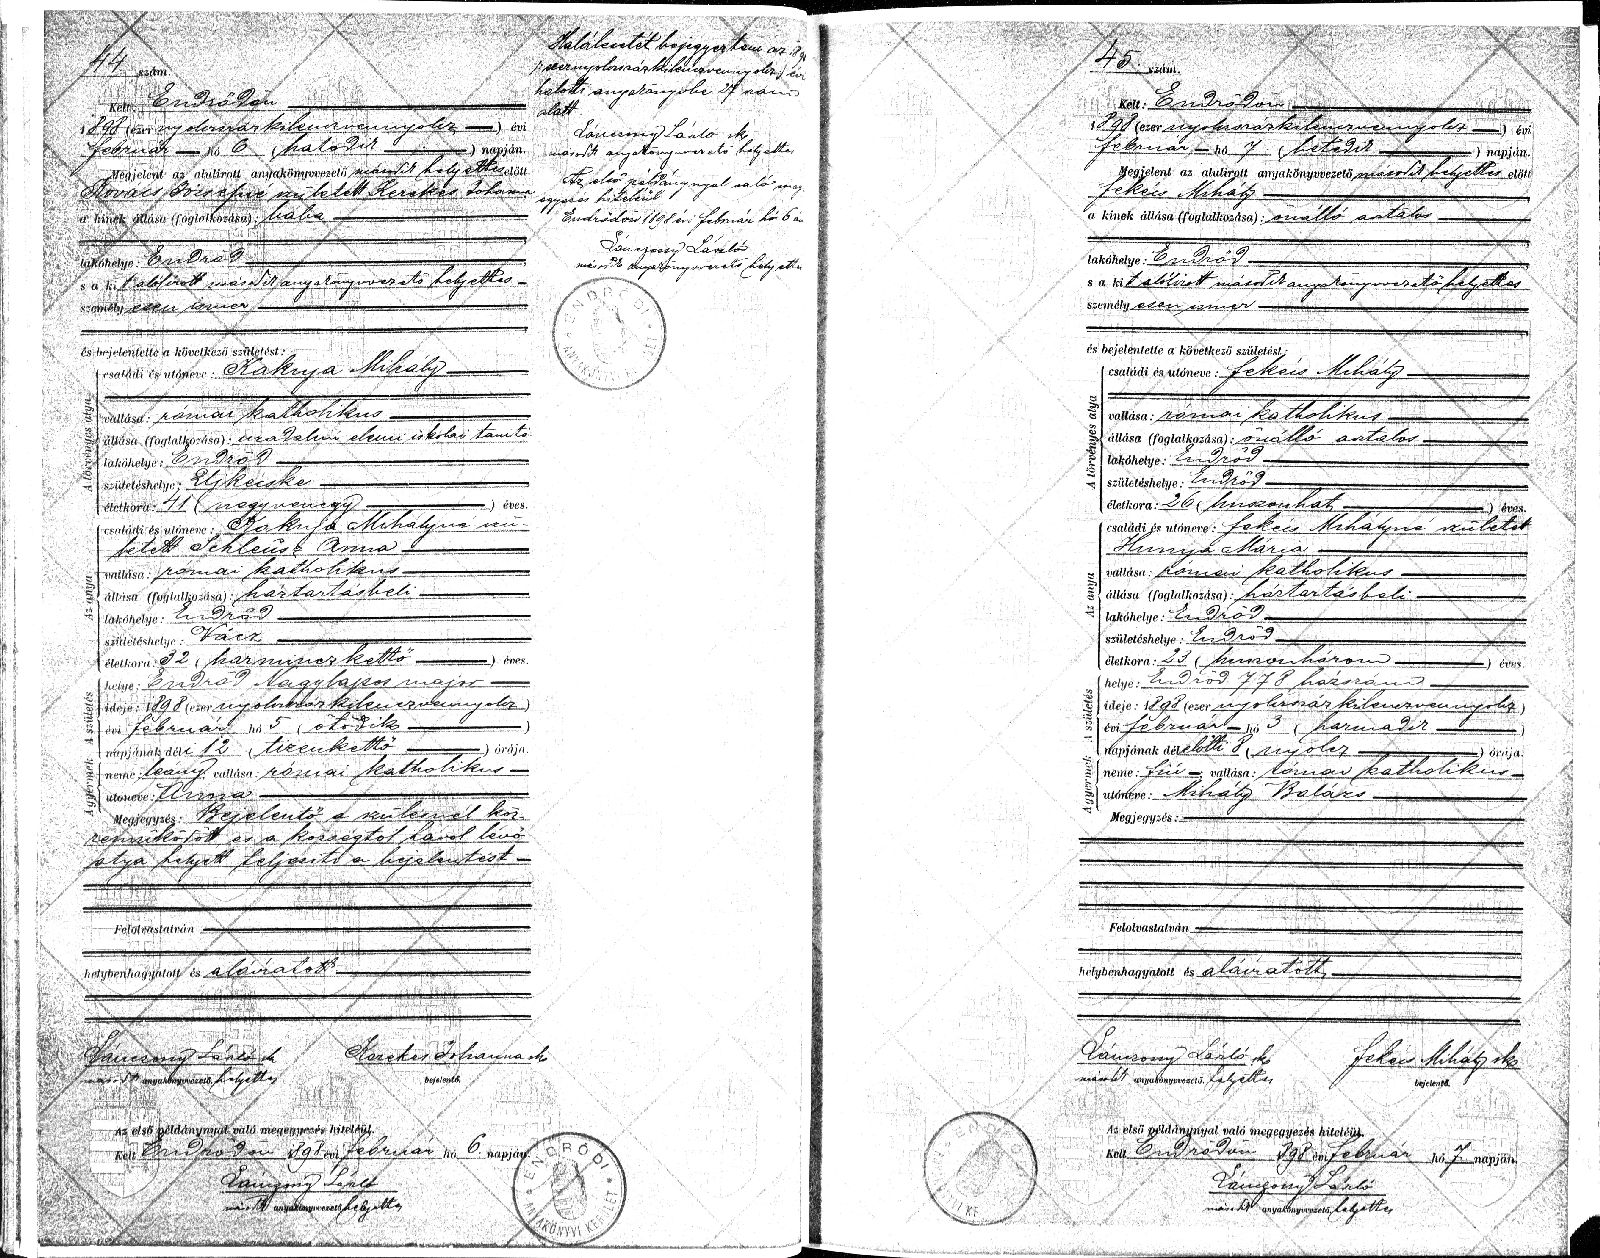 44 szám.
Kelt: Endrődön
1898 (ezer nyolczszázkilenczvennyolcz) évi
február hó 6 (hatodik) napján.
Megjelent az alulirott anyakönyvvezető második helyettes előtt
Kovács Józsefné született Kerekes Johanna
a kinek állása (foglalkozása): bába
lakóhelye: Endrőd
s a kit alólirott második anyakönyvvezető helyettes
személyesen ismer
és bejelentette a következő születést:
A törvényes atya
családi és utóneve: Kaknya Mihály
vallása: római katholikus
állása (foglalkozása): uradalmi elemi iskolai tanitó
lakóhelye: Endrőd
születéshelye: Ujkécske
életkora: 41 (negyvenegy) éves.
Az anya
családi és utóneve: Kaknya Mihályné szü-
letett Anna
vallása: római katholikus
állása (foglalkozása): háztartásbeli
lakóhelye: Endrőd
születéshelye: Vácz
életkora: 32 (harminczkettő) éves.
A születés
helye: Endrőd Nagylapos major
ideje: 1898 (ezer nyolczszázkilenczvennyolcz)
évi február hó 5 (ötödik)
napjának déli 12 (tizenkettő) órája.
A gyermek
neme: leány vallása: római katholikus
utóneve: Anna
Megjegyzés: Bejelentő a szülésnél köz-
remüködött és a községtől távol lévő
atya helyett teljesiti a bejelentést
Felolvastatván
helybenhagyatott és aláiratott
Lánczony László sk
második anyakönyvvezető helyettes
Kerekes Johanna sk
bejelentő.
Az első példánynyal való megegyezés hiteléül.
Kelt Endrődön 1898 évi február hó 6 napján.
Lánczony László
második anyakönyvvezető helyettes
ENDRŐDI
ANYAKÖNYVI KERÜLET
Halálesetét bejegyeztem az 1898
(ezernyolczszázkilenczvennyolcz) évi
halotti anyakönyvbe 27 szám
alatt.
Lánczony László sk
második anyakönyvvezető helyettes
Az első példánynyal való meg-
egyezés hiteléül
Endrődön 1898 évi február hó 6 án
Lánczony László
második anyakönyvvezető helyettes
ENDRŐDI
ANYAKÖNYVI KERÜLET
45. szám.
Kelt: Endrődön
1898 (ezer nyolczszázkilenczvennyolcz) évi
február hó 7 (hetedik) napján.
Megjelent az alulirott anyakönyvvezető második helyettes előtt
Fekécs Mihály
a kinek állása (foglalkozása): önálló asztalos
lakóhelye: Endrőd
s a kit alólirott második anyakönyvvezető helyettes
személyesen ismer
és bejelentette a következő születést:
A törvényes atya
családi és utóneve: Fekécs Mihály
vallása: római katholikus
állása (foglalkozása): önálló asztalos
lakóhelye: Endrőd
születéshelye: Endrőd
életkora: 26 (huszonhat) éves.
Az anya
családi és utóneve: Fekécs Mihályné született
Hunya Mária
vallása: római katholikus
állása (foglalkozása): háztartásbeli
lakóhelye: Endrőd
születéshelye: Endrőd
életkora: 23 (huszonhárom) éves.
A születés
helye: Endrőd 778 házszám
ideje: 1898 (ezer nyolczszázkilenczvennyolcz)
évi február hó 3 (harmadik)
napjának délelőtti 8 (nyolcz) órája.
A gyermek
neme: fiú vallása: római katholikus
utóneve: Mihály Balázs
Megjegyzés:
Felolvastatván
helybenhagyatott és aláiratott
Lánczony László sk
második anyakönyvvezető helyettes
Fekécs Mihály sk
bejelentő.
Az első példánynyal való megegyezés hiteléül.
Kelt Endrődön 1898 évi február hó 7 napján.
Lánczony László
második anyakönyvvezető helyettes
ENDRŐDI